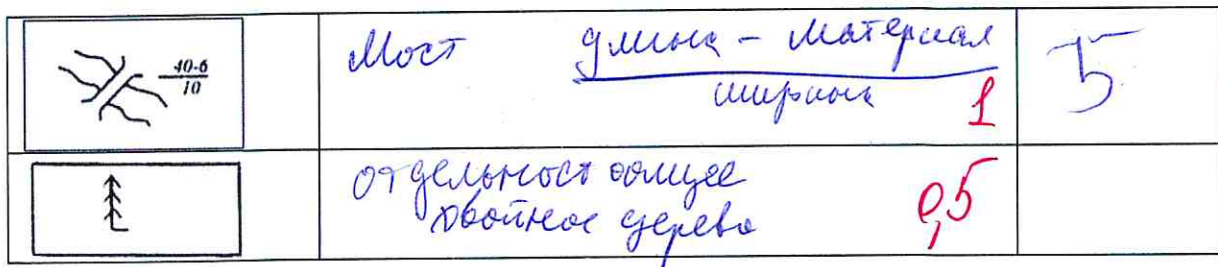 40-6
10
Мост длина - материал
ширина 1
5
отдельностоящее
хвойное дерево 0,5